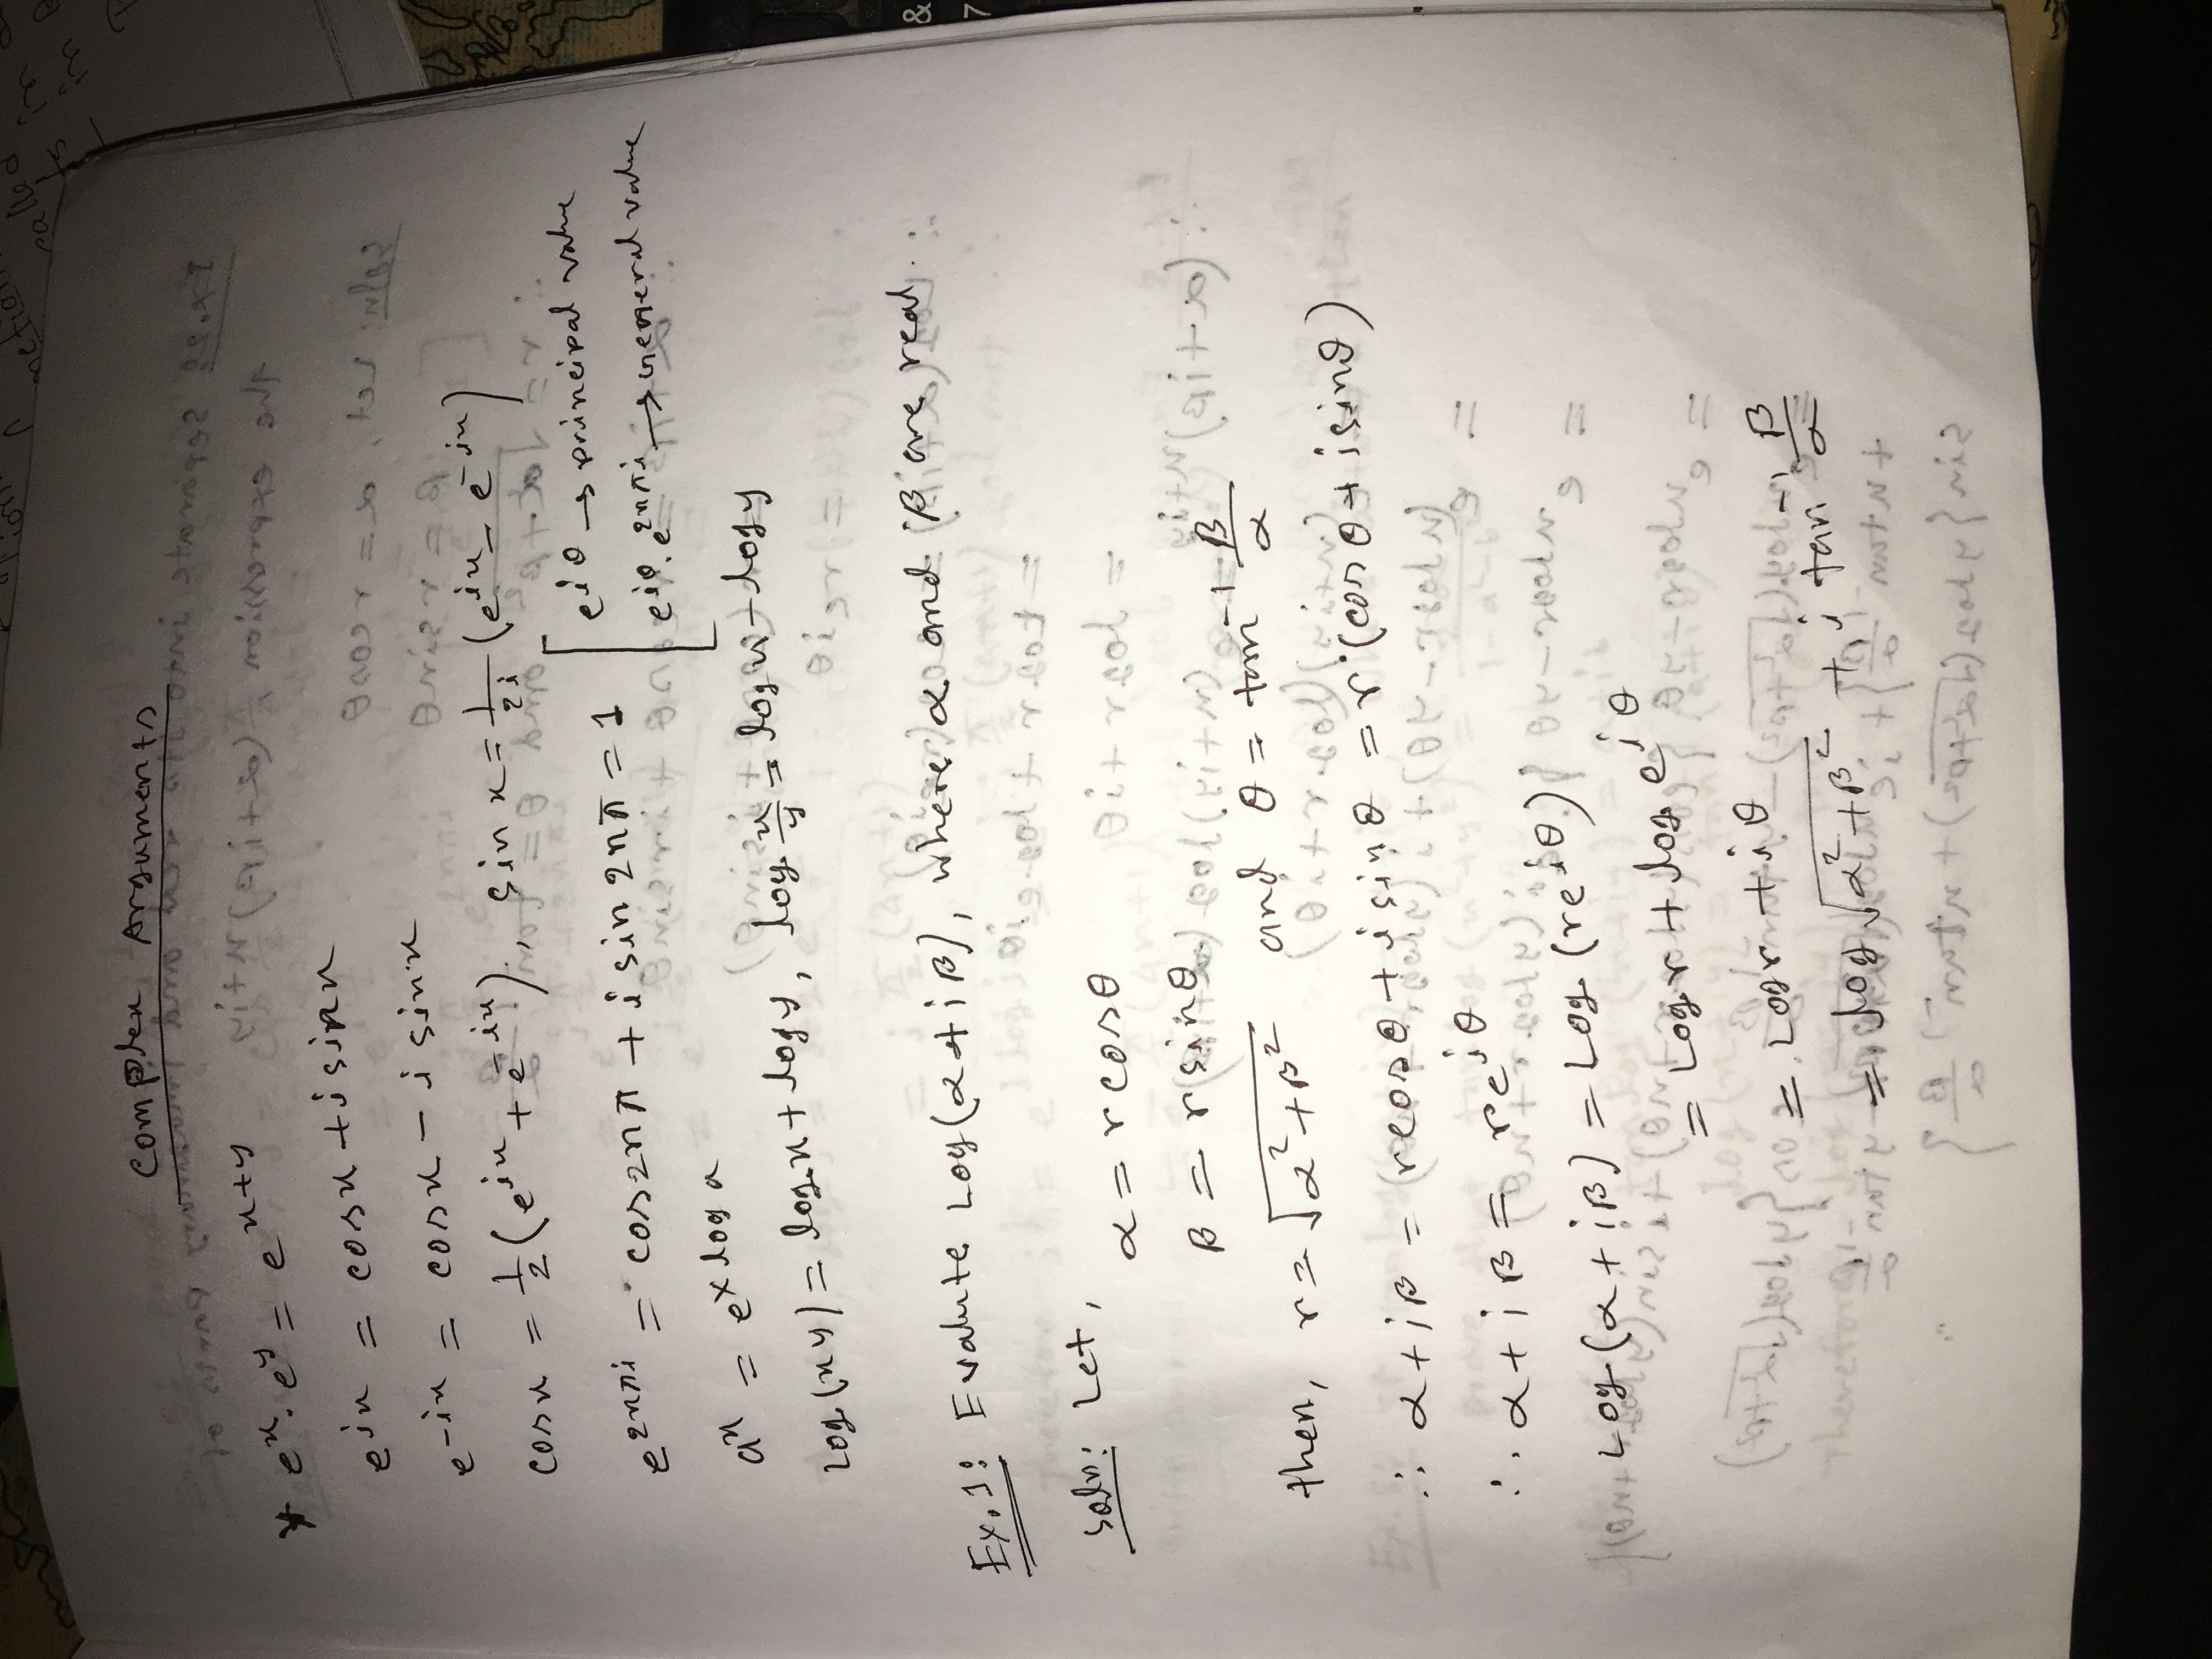 Complex Arguments
* e^x . e^y = e^{x+y}
e^{ix} = cosx + i sinx
e^{-ix} = cosx - i sinx
cosx = 1/2 (e^{ix} + e^{-ix}), sin x = 1/2i (e^{ix} - e^{-ix})
e^{2nπi} = cos2nπ + i sin 2nπ = 1 [ e^{iθ} → principal value
e^{iθ} . e^{2nπi} → General value
a^x = e^{x log a}
Log(xy) = logx + logy, log x/y = logx - logy
Ex.1: Evalute Log(α+iβ), where α and β are real.
Soln: Let,
α = r cosθ
β = r sinθ
then, r = √(α²+β²) and θ = tan⁻¹ β/α
∴ α+iβ = rcosθ + i sinθ = r (cosθ + i sinθ)
∴ α+iβ = re^{iθ}
Log(α+iβ) = Log (re^{iθ})
= Logr + log e^{iθ}
= Logr + iθ
= log √(α²+β²) + i tan⁻¹ β/α